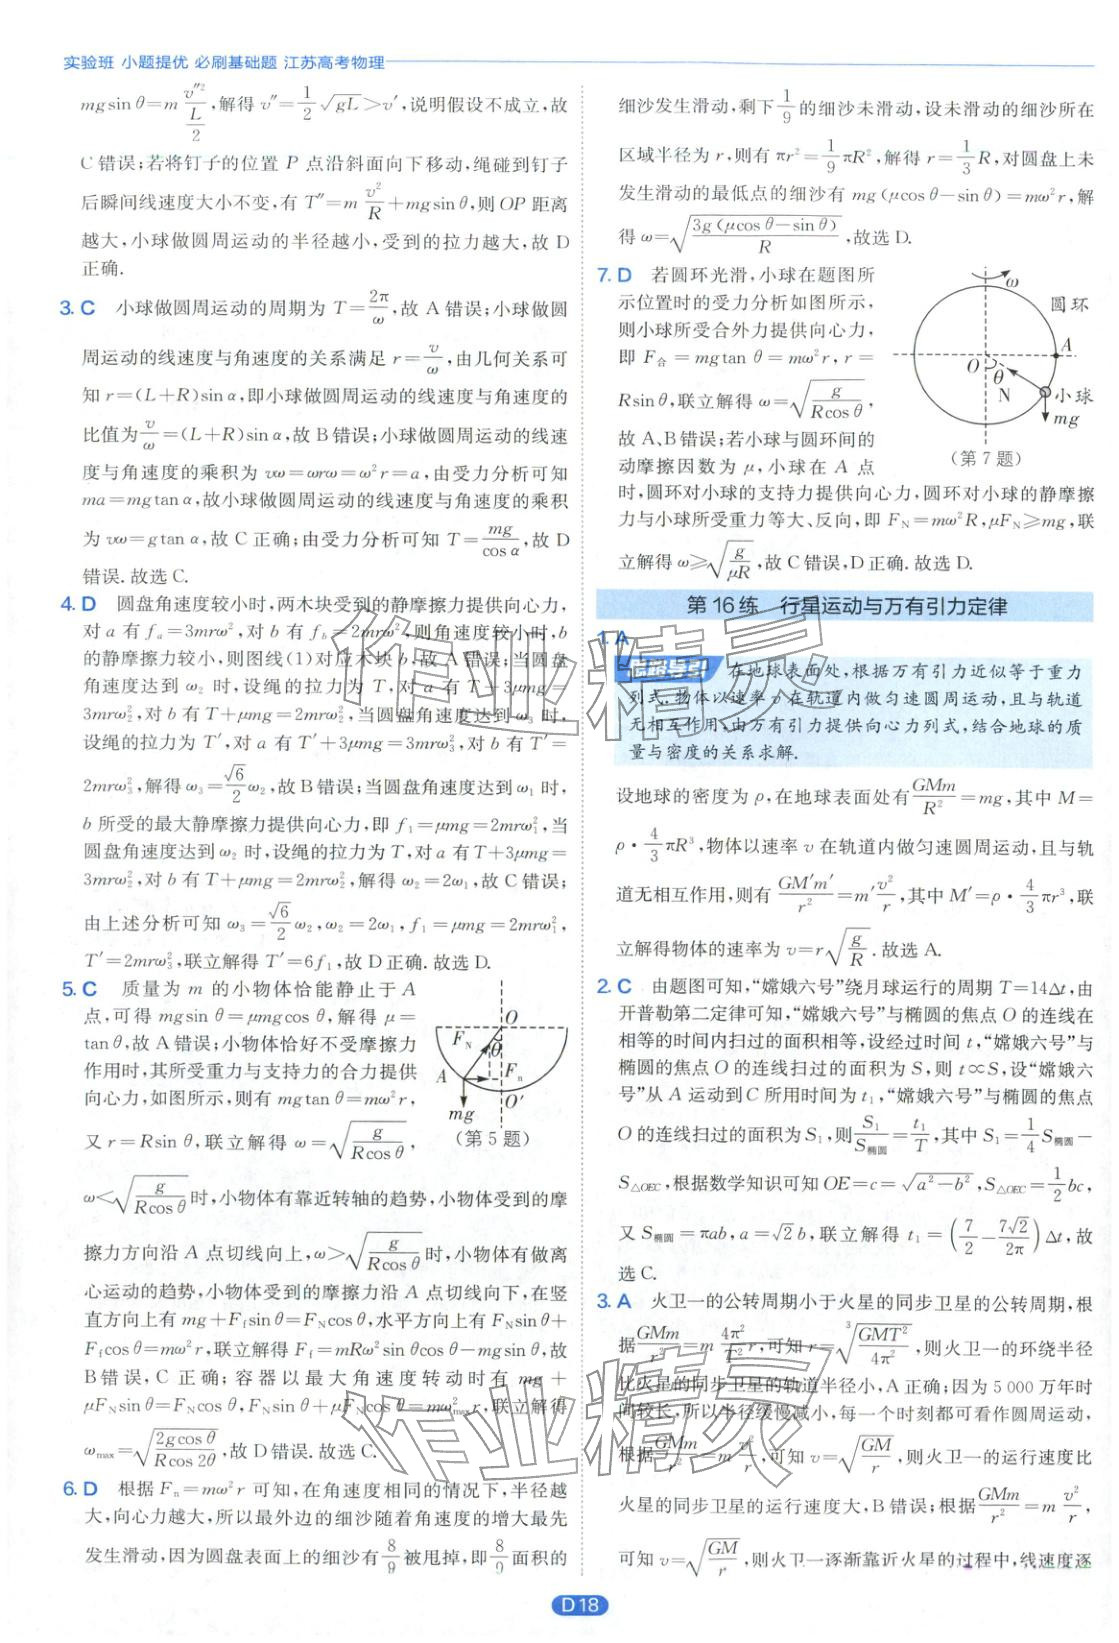 实验班 小题提优 必刷基础题 江苏高考物理
mgsin θ=m v″²/(L/2),解得 v″=1/2 √(gL)>v′,说明假设不成立,故
C错误;若将钉子的位置 P 点沿斜面向下移动,绳碰到钉子
后瞬间线速度大小不变,有 T″=m v²/R+mgsin θ,则OP距离
越大,小球做圆周运动的半径越小,受到的拉力越大,故 D
正确.
3. C 小球做圆周运动的周期为 T=2π/ω,故 A 错误;小球做圆
周运动的线速度与角速度的关系满足 r=v/ω,由几何关系可
知 r=(L+R)sin α,即小球做圆周运动的线速度与角速度的
比值为 v/ω=(L+R)sin α,故 B错误;小球做圆周运动的线速
度与角速度的乘积为 vω=ωrω=ω²r=a,由受力分析可知
ma=mgtan α,故小球做圆周运动的线速度与角速度的乘积
为 vω=gtan α,故 C 正确;由受力分析可知 T=mg/cos α,故 D
错误.故选 C.
4. D 圆盘角速度较小时,两木块受到的静摩擦力提供向心力,
对 a 有 fa=3mrω²,对 b 有 fb=2mrω²,则角速度较小时,b
的静摩擦力较小,则图线(1)对应木块 b,故 A 错误;当圆盘
角速度达到 ω₂ 时,设绳的拉力为 T,对 a 有 T+3μmg=
3mrω₂²,对 b 有 T+μmg=2mrω₂²,当圆盘角速度达到 ω₃ 时,
设绳的拉力为 T′,对 a 有 T′+3μmg=3mrω₃²,对 b 有 T′=
2mrω₃²,解得 ω₃=√6/2 ω₂,故 B 错误;当圆盘角速度达到 ω₁ 时,
b 所受的最大静摩擦力提供向心力,即 f₁=μmg=2mrω₁²,当
圆盘角速度达到 ω₂ 时,设绳的拉力为 T,对 a 有 T+3μmg=
3mrω₂²,对 b 有 T+μmg=2mrω₂²,解得 ω₂=2ω₁,故 C 错误;
由上述分析可知 ω₃=√6/2 ω₂,ω₂=2ω₁,f₁=μmg=2mrω₁²,
T′=2mrω₃²,联立解得 T′=6f₁,故 D 正确.故选 D.
5. C 质量为 m 的小物体恰能静止于 A
点,可得 mgsin θ=μmgcos θ,解得 μ=
tan θ,故 A 错误;小物体恰好不受摩擦力
作用时,其所受重力与支持力的合力提供
向心力,如图所示,则有 mgtan θ=mω²r,
又 r=Rsin θ,联立解得 ω=√(g/(Rcos θ)),
O
FN
θ
A
Fn
mg
O′
(第 5 题)
ω<√(g/(Rcos θ))时,小物体有靠近转轴的趋势,小物体受到的摩
擦力方向沿 A 点切线向上,ω>√(g/(Rcos θ))时,小物体有做离
心运动的趋势,小物体受到的摩擦力沿 A 点切线向下,在竖
直方向上有 mg+Ffsin θ=FNcos θ,水平方向上有 FNsin θ+
Ffcos θ=mω²r,联立解得 Ff=mRω²sin θcos θ-mgsin θ,故
B错误,C 正确;容器以最大角速度转动时有 mg+
μFNsin θ=FNcos θ,FNsin θ+μFNcos θ=mω²maxr,联立解得
ωmax=√(2gcos θ/(Rcos 2θ)),故 D 错误.故选 C.
6. D 根据 Fn=mω²r 可知,在角速度相同的情况下,半径越
大,向心力越大,所以最外边的细沙随着角速度的增大最先
发生滑动,因为圆盘表面上的细沙有 8/9 被甩掉,即 8/9 面积的
细沙发生滑动,剩下 1/9 的细沙未滑动,设未滑动的细沙所在
区域半径为 r,则有 πr²=1/9 πR²,解得 r=1/3 R,对圆盘上未
发生滑动的最低点的细沙有 mg(μcos θ-sin θ)=mω²r,解
得 ω=√(3g(μcos θ-sin θ)/R),故选 D.
7. D 若圆环光滑,小球在题图所
示位置时的受力分析如图所示,
则小球所受合外力提供向心力,
即 F合=mgtan θ=mω²r,r=
Rsin θ,联立解得 ω=√(g/(Rcos θ)),
故 A、B错误;若小球与圆环间的
动摩擦因数为 μ,小球在 A 点
ω
圆环
A
O
θ
N
小球
mg
(第 7 题)
时,圆环对小球的支持力提供向心力,圆环对小球的静摩擦
力与小球所受重力等大、反向,即 FN=mω²R,μFN≥mg,联
立解得 ω≥√(g/(μR)),故 C 错误,D 正确.故选 D.
第 16 练 行星运动与万有引力定律
1. A
思路导引 在地球表面处,根据万有引力近似等于重力
列式.物体以速率 v 在轨道内做匀速圆周运动,且与轨道
无相互作用,由万有引力提供向心力列式,结合地球的质
量与密度的关系求解.
设地球的密度为 ρ,在地球表面处有 GMm/R²=mg,其中 M=
ρ·4/3 πR³,物体以速率 v 在轨道内做匀速圆周运动,且与轨
道无相互作用,则有 GM′m′/r²=m′v²/r,其中 M′=ρ·4/3 πr³,联
立解得物体的速率为 v=r√(g/R).故选 A.
2. C 由题图可知,“嫦娥六号”绕月球运行的周期 T=14Δt,由
开普勒第二定律可知,“嫦娥六号”与椭圆的焦点 O 的连线在
相等的时间内扫过的面积相等,设经过时间 t,“嫦娥六号”与
椭圆的焦点 O 的连线扫过的面积为 S,则 t∝S,设“嫦娥六
号”从 A 运动到 C 所用时间为 t₁,“嫦娥六号”与椭圆的焦点
O 的连线扫过的面积为 S₁,则 S₁/S椭圆=t₁/T,其中 S₁=1/4 S椭圆-
S△OEC,根据数学知识可知 OE=c=√(a²-b²),S△OEC=1/2 bc,
又 S椭圆=πab,a=√2 b,联立解得 t₁=(7/2-7√2/2π)Δt,故
选 C.
3. A 火卫一的公转周期小于火星的同步卫星的公转周期,根
据 GMm/r²=m 4π²/T² r,可知 r=³√(GMT²/4π²),则火卫一的环绕半径
比火星的同步卫星的轨道半径小,A 正确;因为 5 000 万年时
间较长,所以半径缓慢减小,每一个时刻都可看作圆周运动,
根据 GMm/r²=m v²/r,可知 v=√(GM/r),则火卫一的运行速度比
火星的同步卫星的运行速度大,B 错误;根据 GMm/r²=m v²/r,
可知 v=√(GM/r),则火卫一逐渐靠近火星的过程中,线速度逐
D18
作业精灵
作业精灵